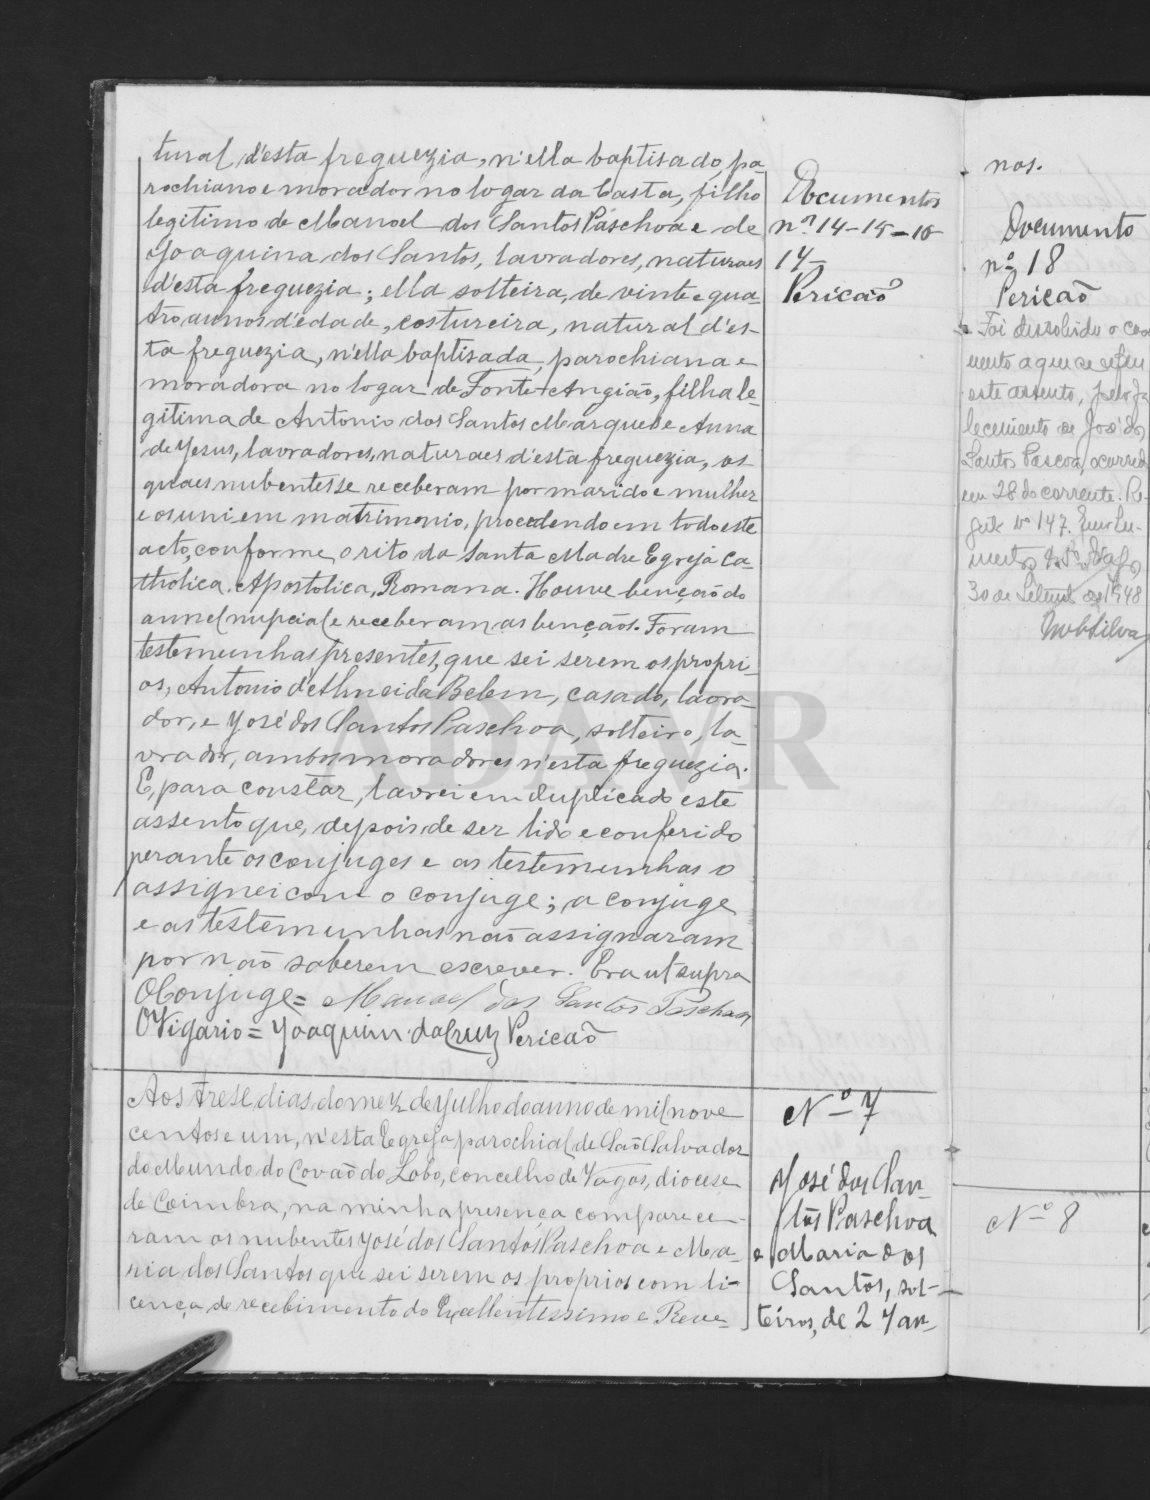 tural d'esta freguezia, n'ella baptisado, pa-
rochiano e morador no logar da Casta, filho
legitimo de Manoel dos Santos Paschoa e de
Joaquina dos Santos, lavradores, naturaes
d'esta freguezia; ella solteira, de vinte e qua-
tro annos d'edade, costureira, natural d'es-
ta freguezia, n'ella baptisada, parochiana e
moradora no logar de Fonte Angião, filha le-
gitima de Antonio dos Santos Marques e Anna
de Jesus, lavradores, naturaes d'esta freguezia, os
quaes nubentes se receberam por marido e mulher
e os uni em matrimonio, procedendo em todo este
acto, conforme o rito da Santa Madre Egreja Ca-
tholica, Apostolica, Romana. Houve benção do
annel nupcial e receberam as bençãos. Foram
testemunhas presentes, que sei serem os propri-
os, Antonio d'Almeida Belem, casado, lavra-
dor, e José dos Santos Paschoa, solteiro, la-
vrador, ambos moradores n'esta freguezia.
E, para constar, lavrei em duplicado este
assento que, depois de ser lido e conferido
perante os conjuges e as testemunhas o
assignei com o conjuge; a conjuge
e as testemunhas não assignaram
por não saberem escrever. Era ut supra
O Conjuge = Manoel dos Santos Paschoa
O Vigario = Joaquim da Cruz Pericão
Documentos
nos 14-15-16
17-
Pericão
Aos trese dias do mez de Julho do anno de mil nove
centos e um, n'esta Egreja parochial de São Salvador
do Mundo do Covão do Lobo, concelho de Vagos, diocese
de Coimbra, na minha presença comparece-
ram os nubentes José dos Santos Paschoa e Ma-
ria dos Santos que sei serem os proprios com li-
cença de recebimento do Excellentissimo e Reve-
Nº 7
José dos San-
tos Paschoa
e Maria dos
Santos, sol-
teiros, de 27 an-
nos.
Documento
nº 18
Pericão
Foi dissolvido o casa
mento a que se refere
este assento, pelo fa
lecimento de José dos
Santos Pascoa, ocorrido
em 28 do corrente. Re-
gisto nº 147.
Vagos,
30 de Setembro de 1948
Silva
Nº 8
ADAVR